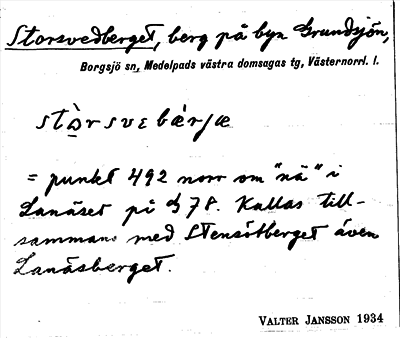 Storsvedberget, berg på byn Grundsjön,
Borgsjö sn, Medelpads västra domsagas tg, Västernorrl. l.
stòrsvɛbǽrjæ
= punkt 492 norr om "nä" i
Lanäset på § 78. Kallas till-
sammans med Stensötberget även
Lanäsberget.
VALTER JANSSON 1934